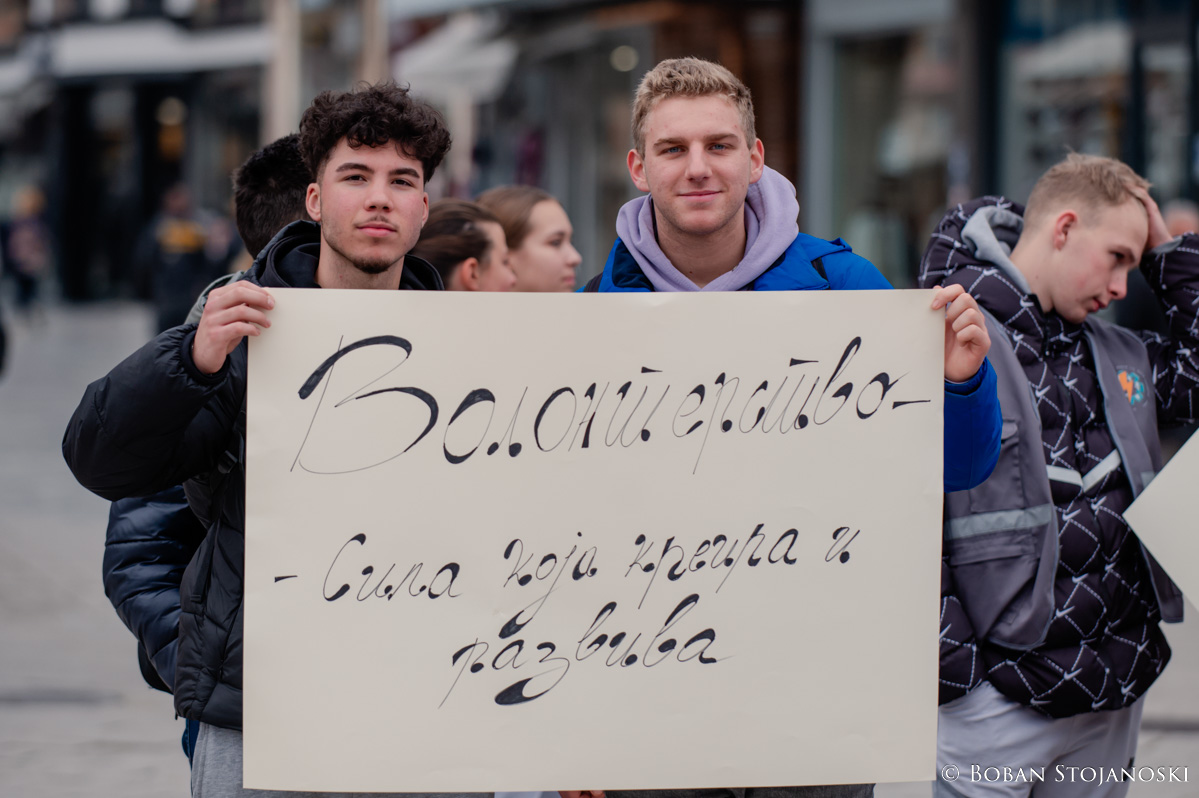 Волонтерство-
- Сила која креира и
развива
© Boban Stojanoski